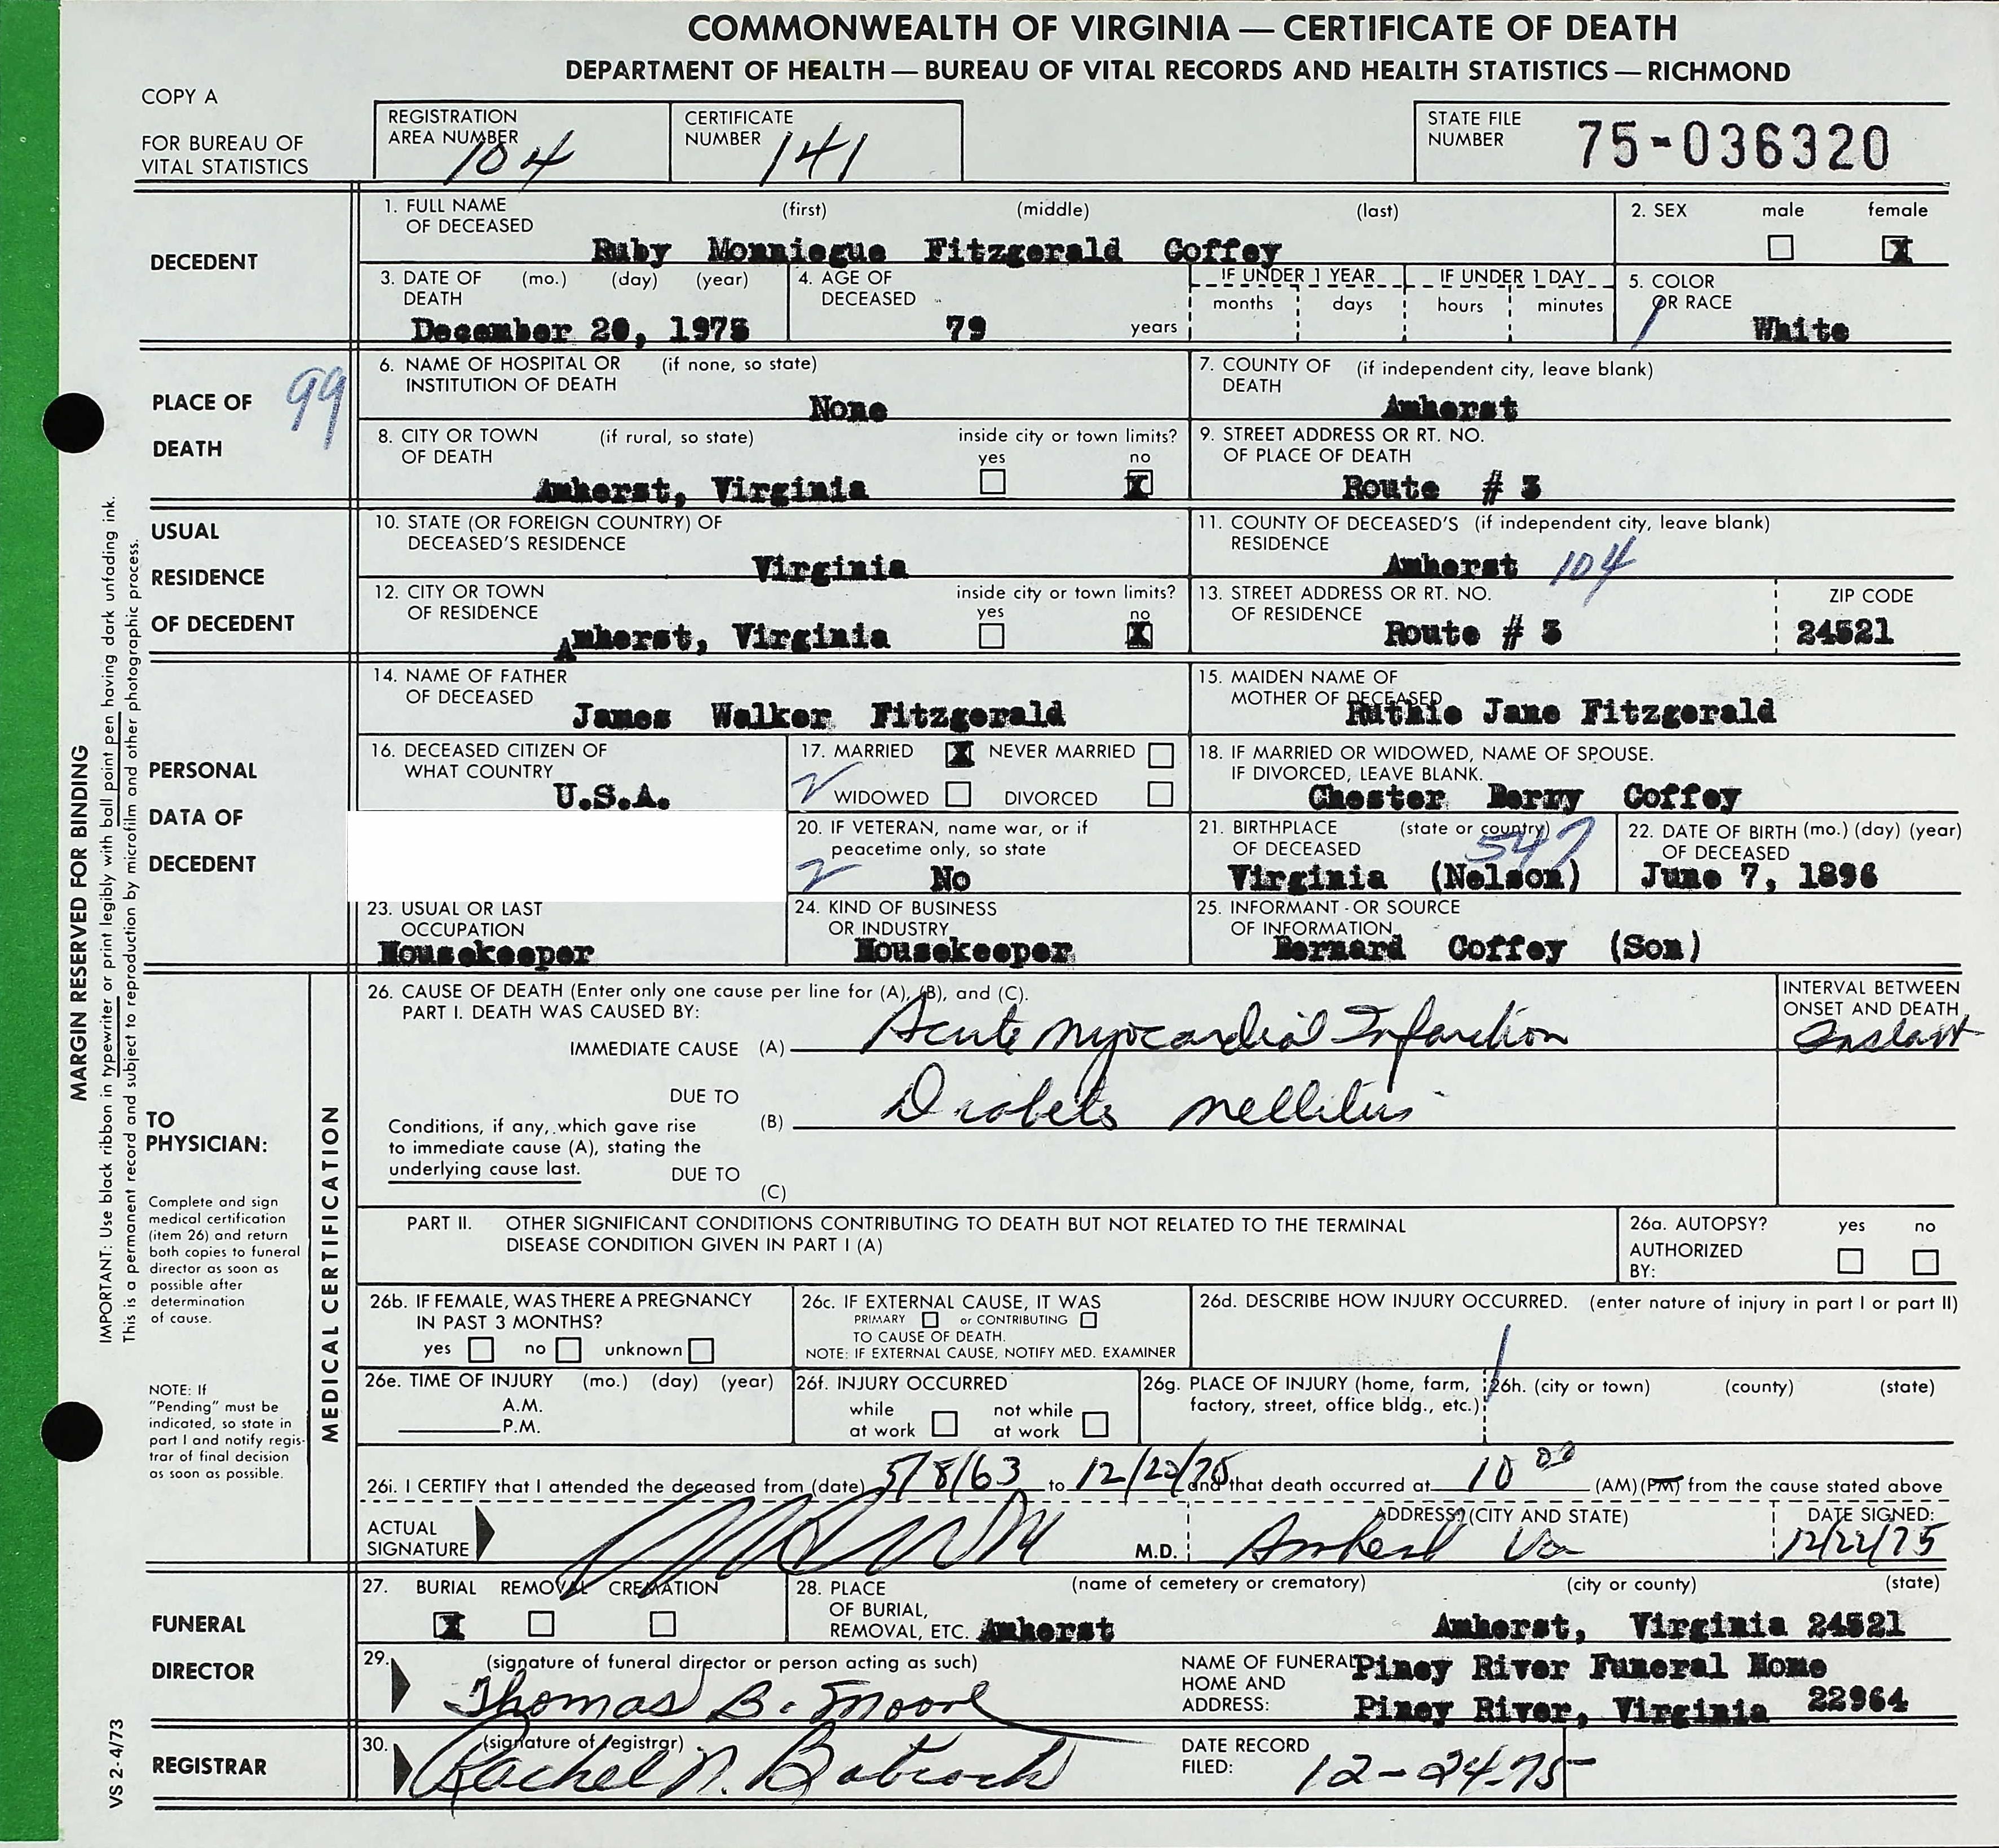 COMMONWEALTH OF VIRGINIA — CERTIFICATE OF DEATH
DEPARTMENT OF HEALTH — BUREAU OF VITAL RECORDS AND HEALTH STATISTICS — RICHMOND
COPY A
FOR BUREAU OF
VITAL STATISTICS
REGISTRATION
AREA NUMBER
104
CERTIFICATE
NUMBER
141
STATE FILE
NUMBER
75-036320
DECEDENT
1. FULL NAME (first) (middle) (last)
OF DECEASED
Ruby Monniegue Fitzgerald Coffey
2. SEX male female
X
3. DATE OF (mo.) (day) (year)
DEATH
December 20, 1975
4. AGE OF
DECEASED
79 years
IF UNDER 1 YEAR
months days
IF UNDER 1 DAY
hours minutes
5. COLOR
OR RACE
White
PLACE OF
DEATH
99
6. NAME OF HOSPITAL OR (if none, so state)
INSTITUTION OF DEATH
None
7. COUNTY OF (if independent city, leave blank)
DEATH
Amherst
8. CITY OR TOWN (if rural, so state) inside city or town limits?
OF DEATH yes no
Amherst, Virginia X
9. STREET ADDRESS OR RT. NO.
OF PLACE OF DEATH
Route # 3
USUAL
RESIDENCE
OF DECEDENT
10. STATE (OR FOREIGN COUNTRY) OF
DECEASED'S RESIDENCE
Virginia
11. COUNTY OF DECEASED'S (if independent city, leave blank)
RESIDENCE
Amherst 104
12. CITY OR TOWN inside city or town limits?
OF RESIDENCE yes no
Amherst, Virginia X
13. STREET ADDRESS OR RT. NO.
OF RESIDENCE
Route # 3
ZIP CODE
24521
PERSONAL
DATA OF
DECEDENT
14. NAME OF FATHER
OF DECEASED
James Walker Fitzgerald
15. MAIDEN NAME OF
MOTHER OF DECEASED
Ruthie Jane Fitzgerald
16. DECEASED CITIZEN OF
WHAT COUNTRY
U.S.A.
17. MARRIED X NEVER MARRIED
WIDOWED DIVORCED
18. IF MARRIED OR WIDOWED, NAME OF SPOUSE.
IF DIVORCED, LEAVE BLANK.
Chester Berry Coffey
20. IF VETERAN, name war, or if
peacetime only, so state
No
21. BIRTHPLACE (state or country)
OF DECEASED
547
Virginia (Nelson)
22. DATE OF BIRTH (mo.) (day) (year)
OF DECEASED
June 7, 1896
23. USUAL OR LAST
OCCUPATION
Housekeeper
24. KIND OF BUSINESS
OR INDUSTRY
Housekeeper
25. INFORMANT - OR SOURCE
OF INFORMATION
Bernard Coffey (Son)
TO
PHYSICIAN:
Complete and sign
medical certification
(item 26) and return
both copies to funeral
director as soon as
possible after
determination
of cause.
NOTE: If
"Pending" must be
indicated, so state in
part I and notify regis-
trar of final decision
as soon as possible.
MEDICAL CERTIFICATION
26. CAUSE OF DEATH (Enter only one cause per line for (A), (B), and (C).
PART I. DEATH WAS CAUSED BY:
INTERVAL BETWEEN
ONSET AND DEATH
IMMEDIATE CAUSE (A) Acute Myocardial Infarction
DUE TO
(B) Diabetes Mellitus
Conditions, if any, which gave rise
to immediate cause (A), stating the
underlying cause last.
DUE TO
(C)
PART II. OTHER SIGNIFICANT CONDITIONS CONTRIBUTING TO DEATH BUT NOT RELATED TO THE TERMINAL
DISEASE CONDITION GIVEN IN PART I (A)
26a. AUTOPSY? yes no
AUTHORIZED
BY:
26b. IF FEMALE, WAS THERE A PREGNANCY
IN PAST 3 MONTHS?
yes no unknown
26c. IF EXTERNAL CAUSE, IT WAS
PRIMARY or CONTRIBUTING
TO CAUSE OF DEATH.
NOTE: IF EXTERNAL CAUSE, NOTIFY MED. EXAMINER
26d. DESCRIBE HOW INJURY OCCURRED. (enter nature of injury in part I or part II)
26e. TIME OF INJURY (mo.) (day) (year)
A.M.
P.M.
26f. INJURY OCCURRED
while not while
at work at work
26g. PLACE OF INJURY (home, farm,
factory, street, office bldg., etc.)
26h. (city or town) (county) (state)
26i. I CERTIFY that I attended the deceased from (date) 5/8/63 to 12/20/75 and that death occurred at 10 00 (AM)(PM) from the cause stated above
ACTUAL
SIGNATURE
M.D.
ADDRESS (CITY AND STATE)
Amherst Va
DATE SIGNED:
12/22/75
FUNERAL
DIRECTOR
27. BURIAL REMOVAL CREMATION
X
28. PLACE (name of cemetery or crematory) (city or county) (state)
OF BURIAL,
REMOVAL, ETC. Amherst Amherst, Virginia 24521
29. (signature of funeral director or person acting as such)
Thomas B. Moore
NAME OF FUNERAL
HOME AND
ADDRESS:
Piney River Funeral Home
Piney River, Virginia 22964
REGISTRAR
30. (signature of registrar)
Rachel N. Babcock
DATE RECORD
FILED:
12-24-75
MARGIN RESERVED FOR BINDING
IMPORTANT: Use black ribbon in typewriter or print legibly with ball point pen having dark unfading ink.
This is a permanent record and subject to reproduction by microfilm and other photographic process.
VS 2-4/73